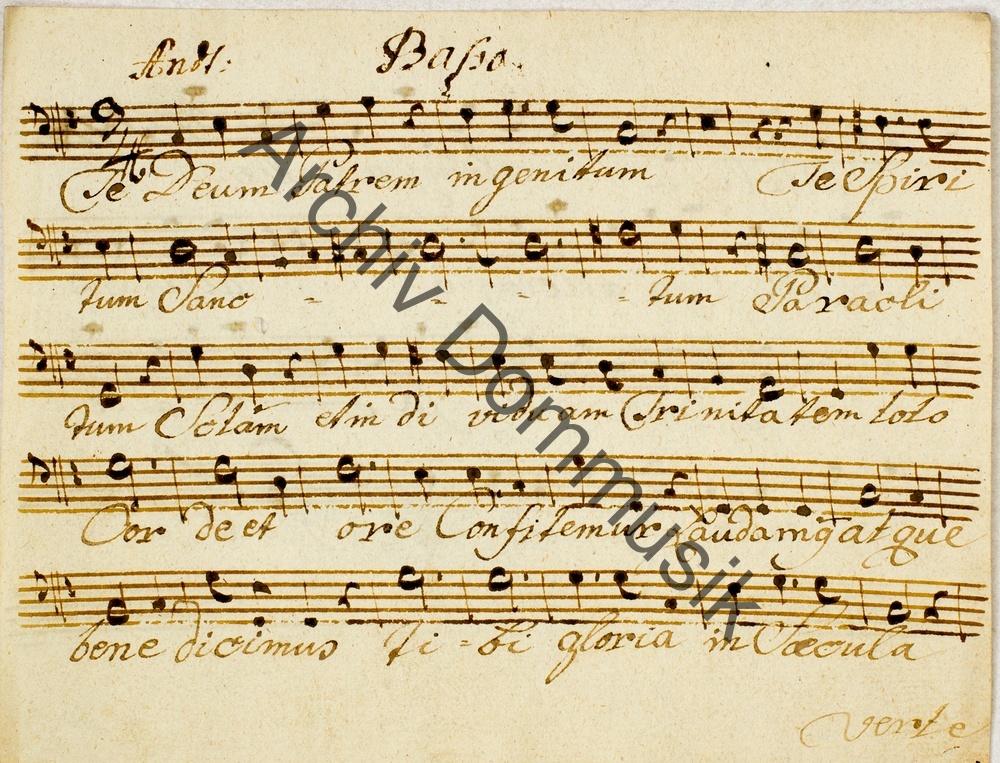 And: Basso
Te Deum Patrem ingenitum Te Spiri
tum Sanc - - - - tum Paracli
tum Sctam et in di viduam Trinitatem toto
Cor de et ore Confitemur Laudamg at que
bene dicimus ti - bi gloria in Sæcula
verte
Archiv Dommusik